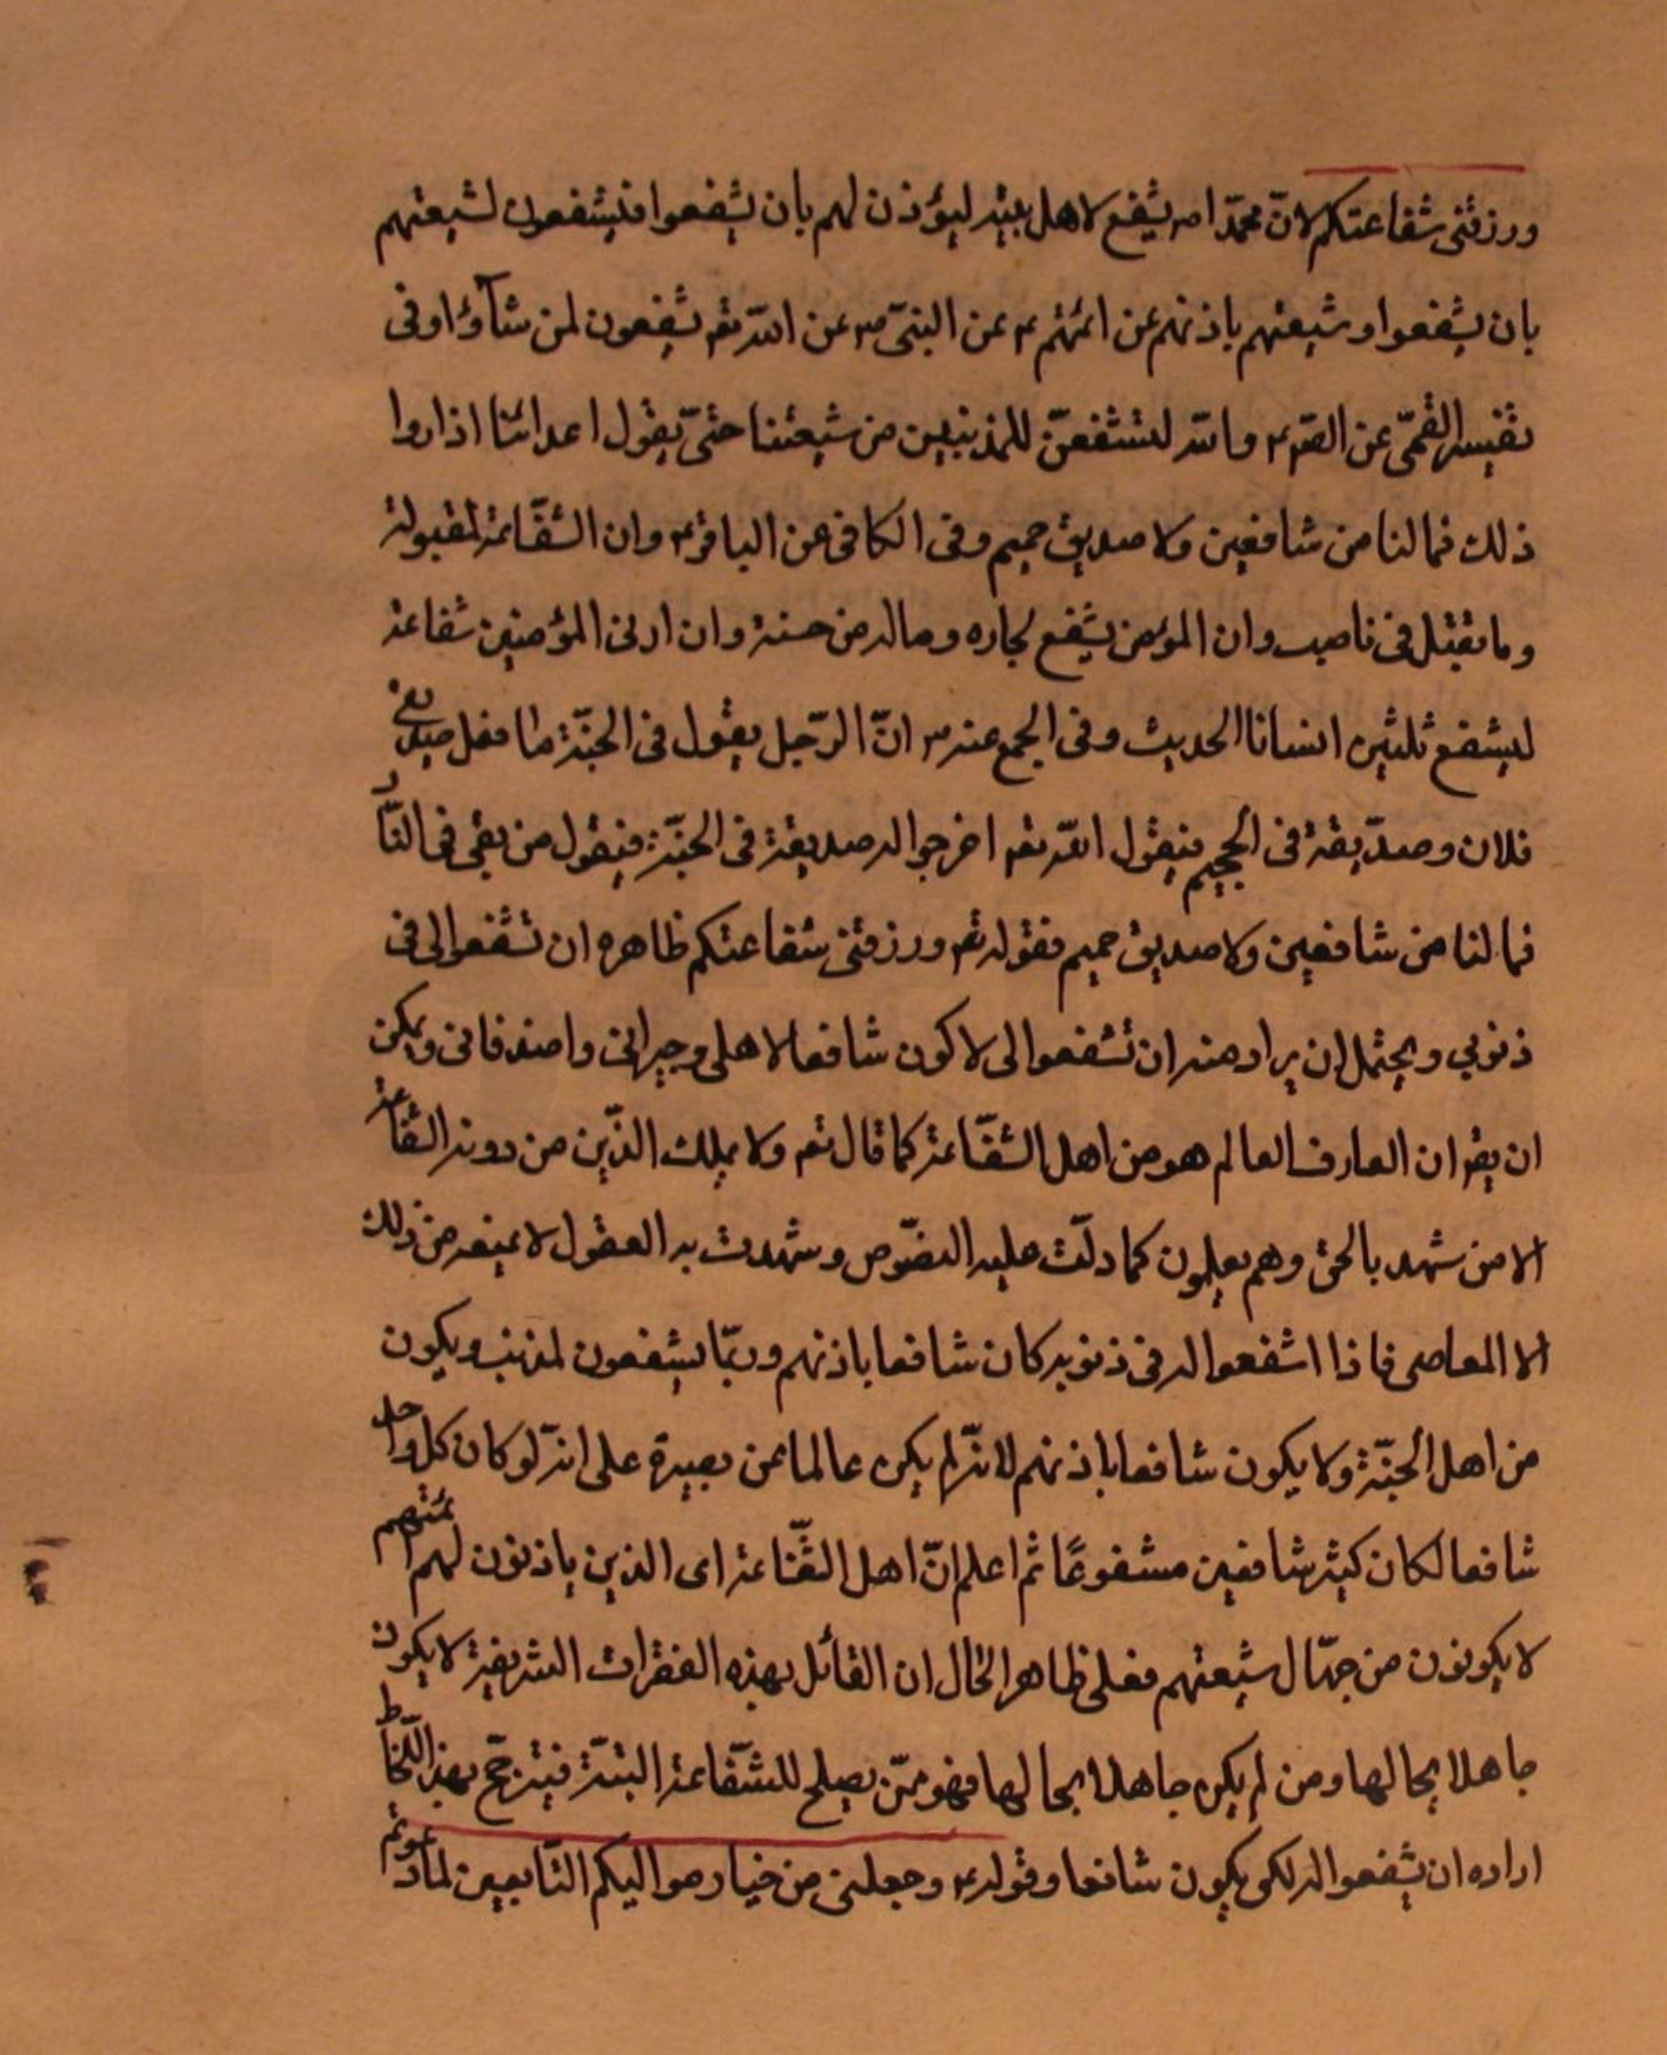 ورزقنى شفاعتكم لانّ محمّدا ص يشفع لاهل بيته ليؤذن لهم بان يشفعوا فيشفعون لشيعتهم
بان يشفعوا وشيعتهم باذنهم عن ائمتهم ع عن النبىّ ص عن اللّه تعم يشفعون لمن شآؤا وفى
تفيسر القمّى عن الصّم ع واللّه لنشفعنّ للمذنبين من شيعتنا حتىّ يقول اعدائنا اذاروا
ذلك فمالنا من شافعين ولا صديق حميم وفى الكافى عن الباقر ع وان الشّفاعة لمقبولة
وما تقبل فى ناصب وان المؤمن يشفع لجاره وماله من حسنة وان ادنى المؤمنين شفاعة
ليشفع ثلثين انسانا الحديث وفى المجمع عنه ص انّ الرّجل يقول فى الجنّة ما فعل صديقى
فلان وصدّيقه فى الجحيم فيقول اللّه تعم اخرجوا له صديقه فى الجنّة فيقول من بقى فى النّار
فمالنا من شافعين ولا صديق حميم فقوله تعم ورزقنى شفاعتكم ظاهره ان تشفعوا لى فى
ذنوبي ويحتمل ان يراد منه ان تشفعوا لى لاكون شافعا لاهلى وجيرانى واصدقائى ويمكن
ان يقم ان العارف العالم هو من اهل الشّفاعة كما قال تعم ولا يملك الذّين من دونه الشّفاعة
الا من شهد بالحق وهم يعلمون كما دلّت عليه النصّوص وشهدت به العقول لا يمنعه من ذلك
الا المعاصى فاذا اشفعوا له فى ذنوبه كان شافعا باذنهم وربّما يشفعون لمذنب ويكون
من اهل الجنّة ولا يكون شافعا باذنهم لانّه لم يكن عالما عن بصيرة على انّه لو كان كل واحد
شافعا لكان كثير شافعين مشفوعًا ثم اعلم انّ اهل الشّفاعة اى الذين ياذنون لهم ائمتهم
لا يكونون من جهّال شيعتهم فعلى ظاهر الحال ان القائل بهذه الفقرات الشريفة لا يكون
جاهلا بحالها ومن لم يكن جاهلا بحالها فهو ممّن يصلح للشّفاعة البتّة فيترجّح بهذا اللّحاظ
اراده ان يشفعوا له لكى يكون شافعا وقوله ع وجعلنى من خيار مواليكم التّابعين لما دعوتم